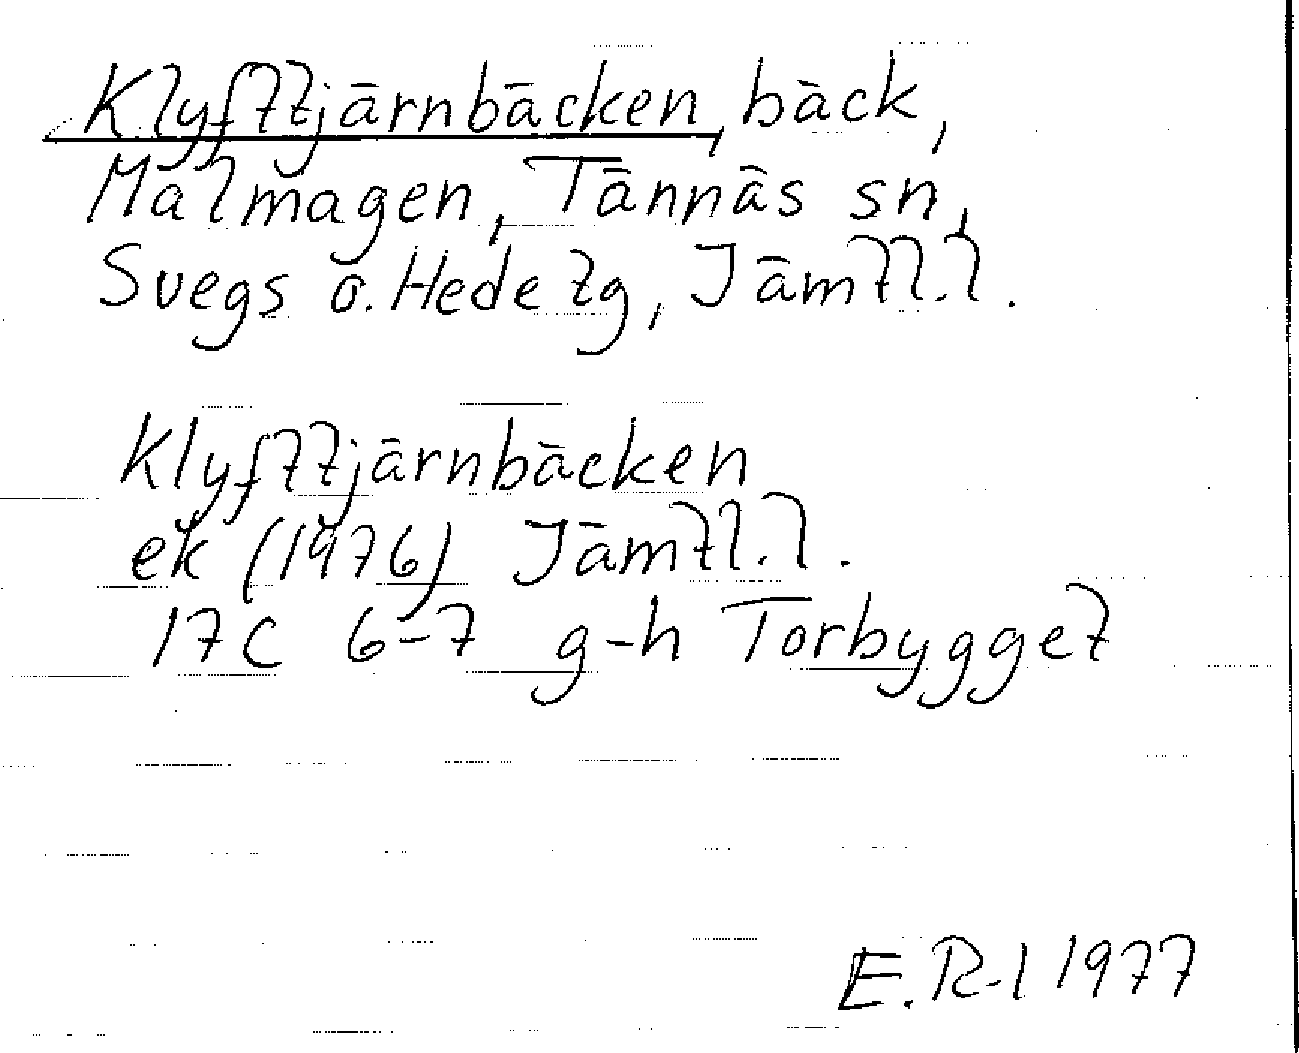 Klyfttjärnbäcken, bäck,
Malmagen, Tännäs sn,
Svegs o. Hede tg, Jämtl.l.
Klyfttjärnbäcken
ek (1976) Jämtl.l.
17C 6-7 g-h Torbygget
E.R-l 1977